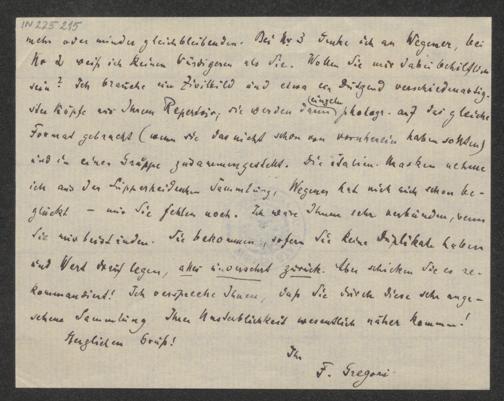 IN 225.215
mehr oder minder gleichbleibenden. Bei No 3 denke ich an Wegener, bei
No 2 weiß ich keinen Würdigeren als Sie. Wollen Sie mir dabei behilflich
sein? Ich brauche ein Zivilbild und etwa ein Dutzend verschiedenartig-
ster Köpfe aus Ihrem Repertoire, sie werden dann (einzeln) photogr. auf das gleiche
Format gebracht (wenn sie das nicht schon von vornherein haben sollten)
und in einer Gruppe zusammengestellt. Die italien. Masken nehme
ich aus der Lipperheideschen Sammlung, Wegener hat mich auch schon be-
glückt – nur Sie fehlen noch. Ich wäre Ihnen sehr verbunden, wenn
Sie mir beistünden. Sie bekommen, sofern Sie keine Duplikate haben
und Wert drauf legen, alles unversehrt zurück. Aber schicken Sie es re-
kommandiert! Ich verspreche Ihnen, daß Sie durch diese sehr ange-
sehene Sammlung Ihrer Unsterblichkeit wesentlich näher kommen!
Herzlichen Gruß!
Ihr
F. Gregori